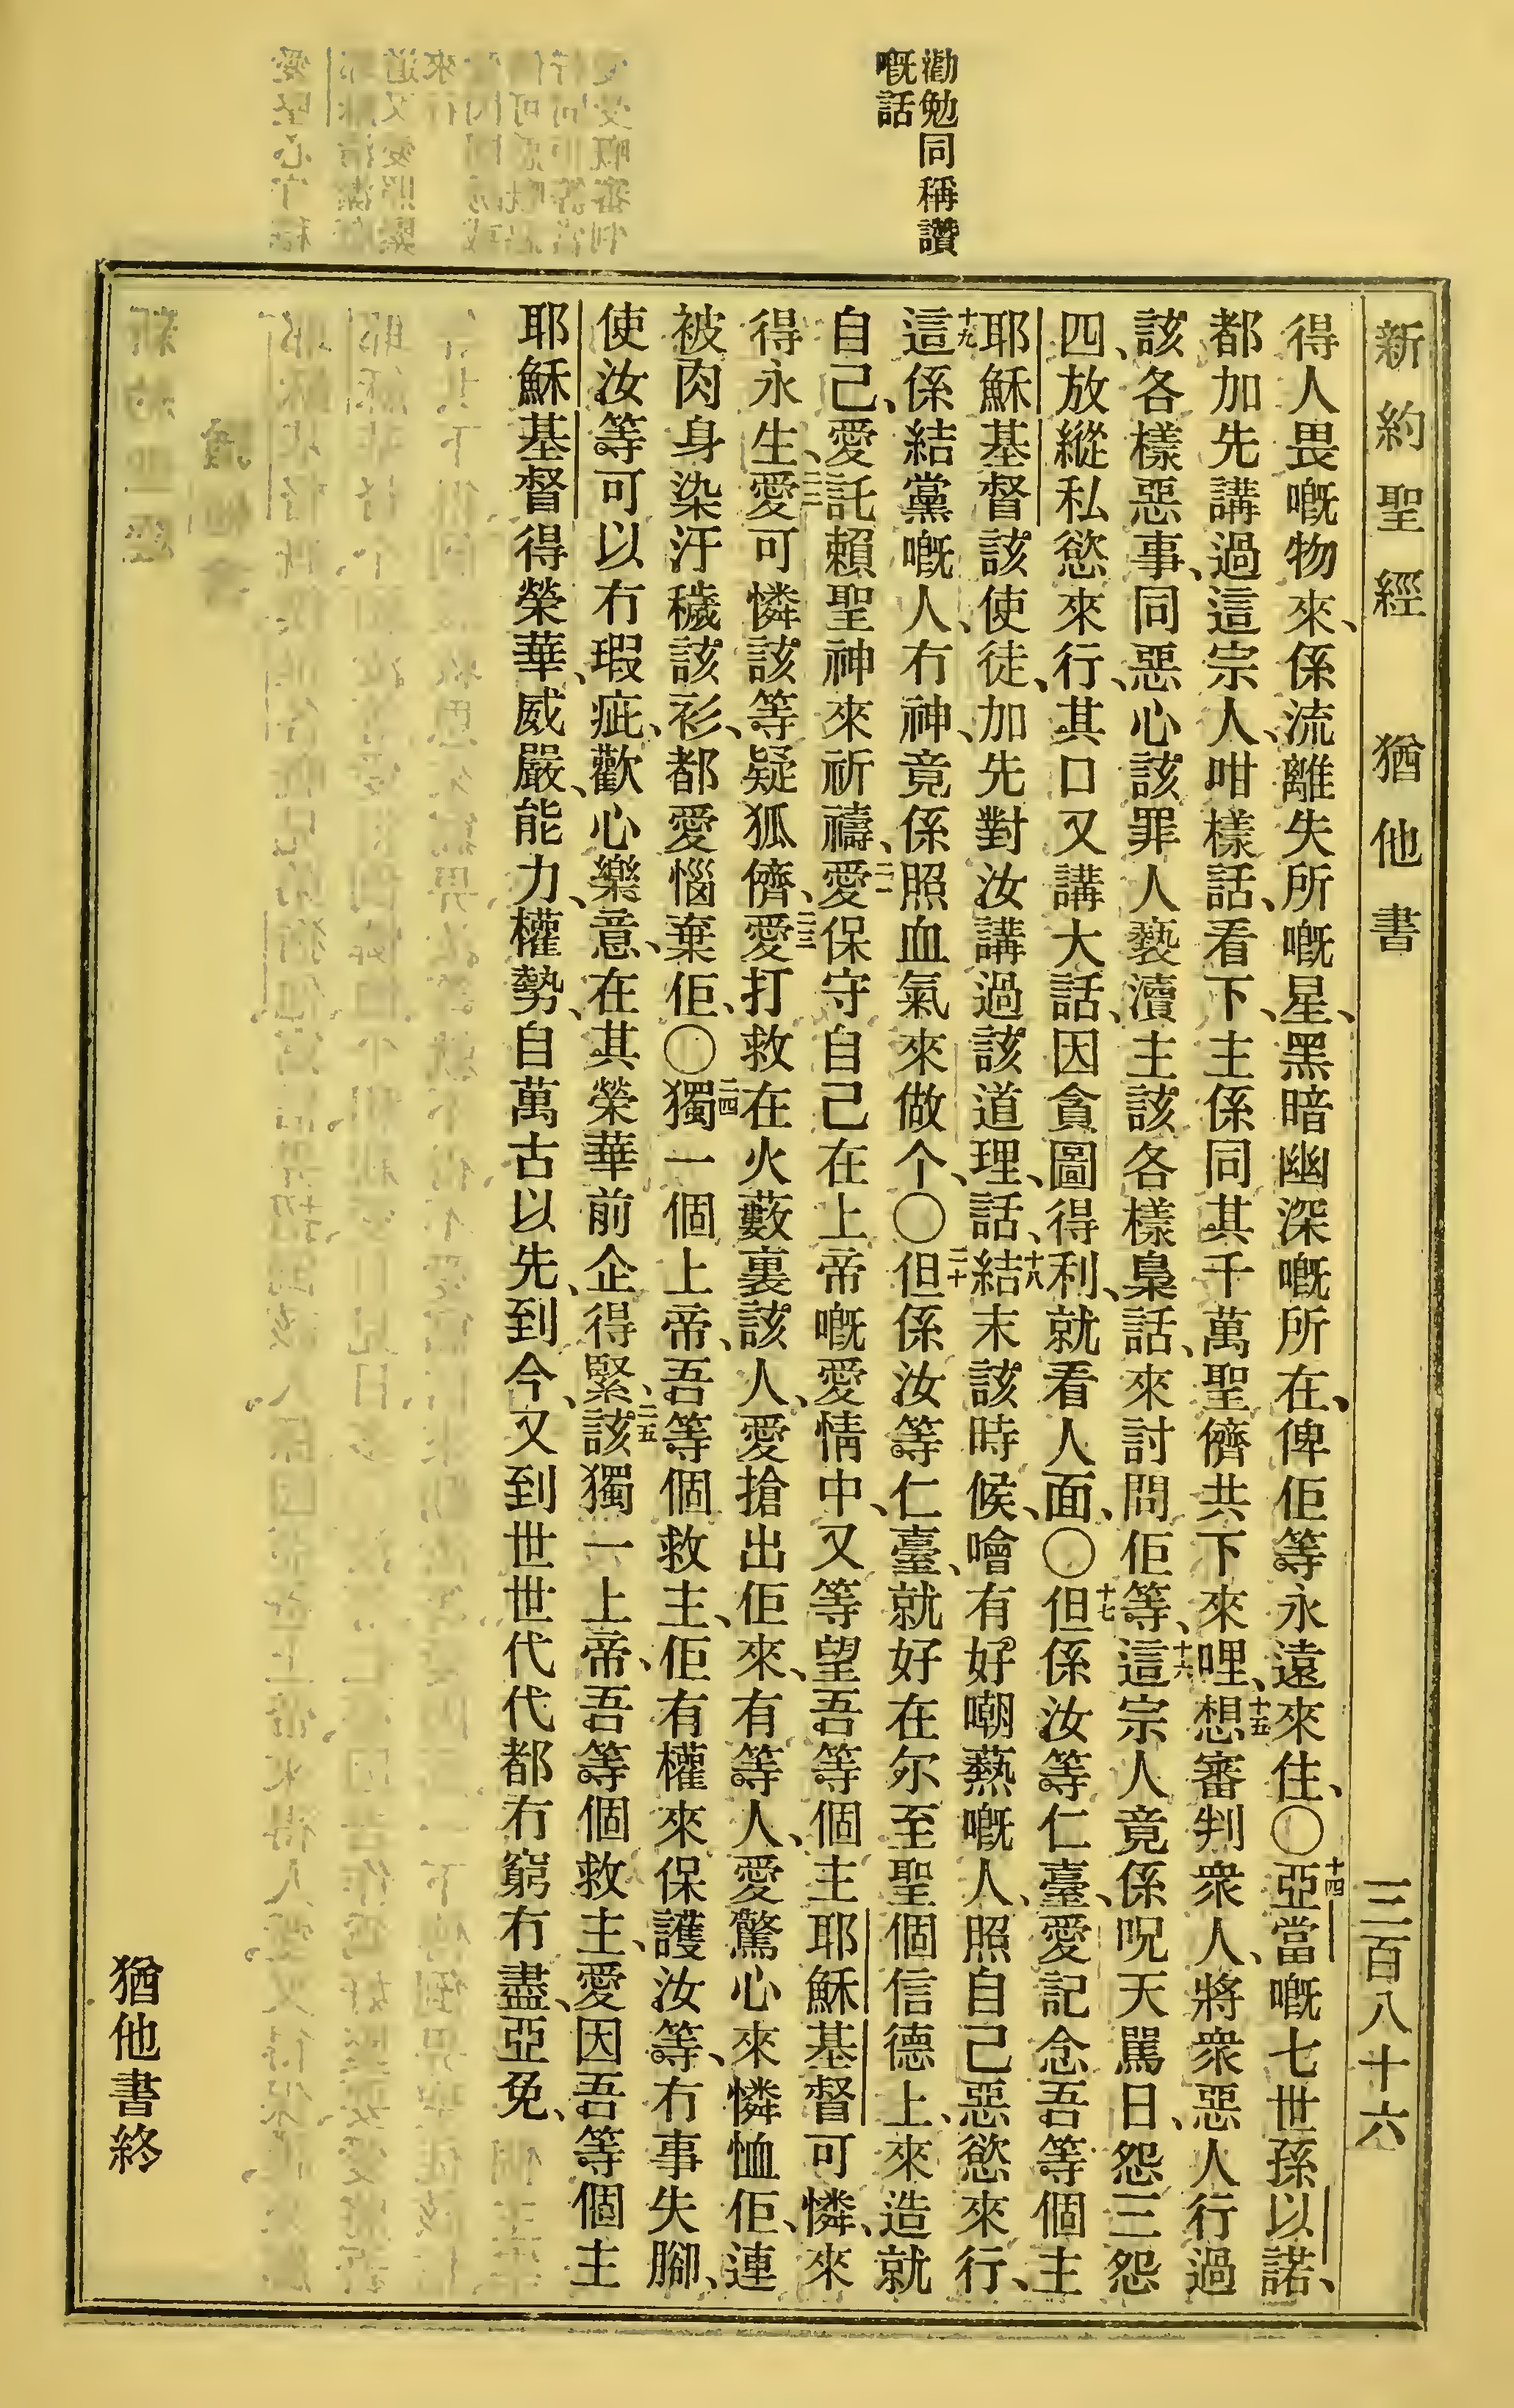 新約聖經 猶他書 三百八十六
勸勉同稱讚
嘅話
得人畏嘅物來、係流離失所嘅星、黑暗幽深嘅所在、俾佢等永遠來住、〇十四亞當嘅七世孫以諾、
都加先講過這宗人、咁樣話、看下、主係同其千萬聖儕共下來哩、十五想審判衆人、將衆惡人行過
該各樣惡事、同惡心該罪人褻瀆主該各樣梟話、來討問佢等、十六這宗人竟係呪天駡日、怨三怨
四、放縱私慾來行、其口又講大話、因貪圖得利、就看人面、〇十七但係汝等仁臺、愛記念吾等個主
耶穌基督該使徒、加先對汝講過該道理、話、十八結末該時候、噲有好嘲爇嘅人、照自己惡慾來行、
十九這係結黨嘅人、冇神、竟係照血氣來做个、〇二十但係汝等仁臺、就好在尔至聖個信德上、來造就
自己、愛託賴聖神來祈禱、二一愛保守自己在上帝嘅愛情中、又等望吾等個主耶穌基督可憐、來
得永生、二二愛可憐該等疑狐儕、二三愛打救在火藪裏該人、愛搶出佢來、有等人、愛驚心來憐恤佢、連
被肉身染汙穢該衫、都愛惱棄佢、〇二四獨一個上帝、吾等個救主、佢有權來保護汝等、冇事失脚、
使汝等可以冇瑕疵、歡心樂意、在其榮華前企得緊、二五該獨一上帝、吾等個救主、愛因吾等個主
耶穌基督得榮華、威嚴、能力、權勢、自萬古以先、到今、又到世世代代都冇窮冇盡、亞免、
猶他書終